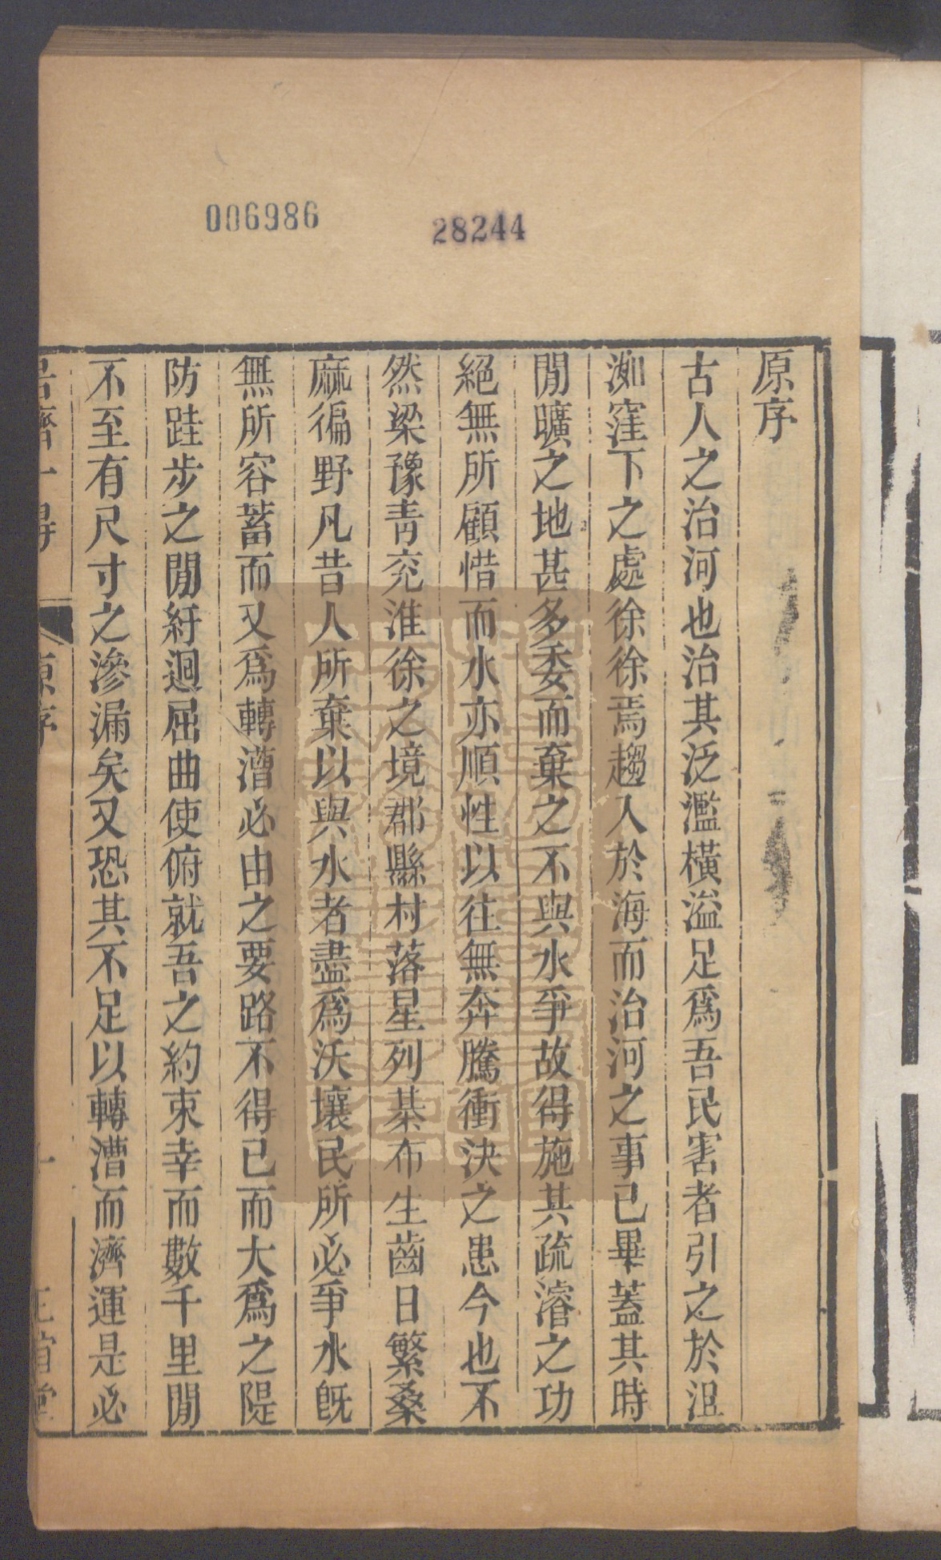 006986
28244
原序
古人之治河也治其泛濫橫溢足爲吾民害者引之於沮
洳窪下之處徐徐焉趨入於海而治河之事已畢蓋其時
閒曠之地甚多委而棄之不與水爭故得施其疏濬之功
絕無所顧惜而水亦順性以往無奔騰衝決之患今也不
然梁豫青兖淮徐之境郡縣村落星列棊布生齒日繁桑
麻徧野凡昔人所棄以與水者盡爲沃壤民所必爭水旣
無所容蓄而又爲轉漕必由之要路不得已而大爲之隄
防跬步之閒紆迴屈曲使俯就吾之約束幸而數千里閒
不至有尺寸之滲漏矣又恐其不足以轉漕而濟運是必
居濟一得
原序
一
正誼堂